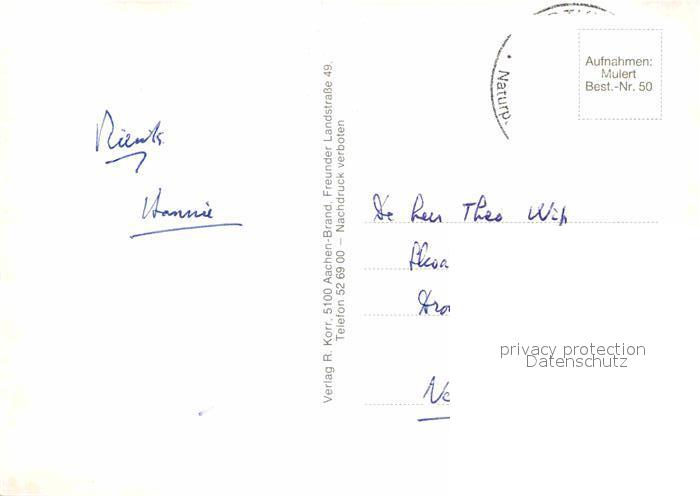 Naturp
Aufnahmen:
Mulert
Best.-Nr. 50
Rienk
Hannie
Verlag R. Korr, 5100 Aachen-Brand, Freunder Landstraße 49,
Telefon 52 69 00 – Nachdruck verboten
De heer Theo
privacy protection
Datenschutz